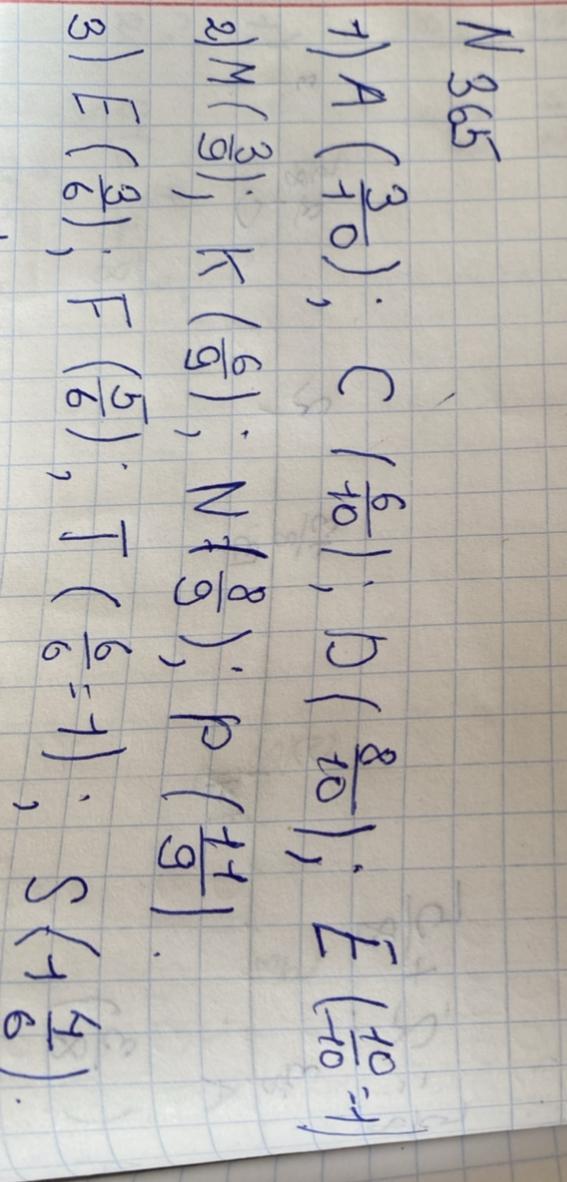 N 365
1) A (3/10); C (6/10); D (8/10); E (10/10 = 1)
2) M (3/9); K (6/9); N (8/9); P (11/9).
3) E (3/6); F (5/6); T (6/6 = 1); S (1 4/6).